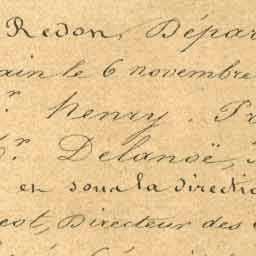 Redon, Dépar
ain le 6 novembre
r. henry. Pr
r. Delanoë,
en sous la directio
eot, Directeur des